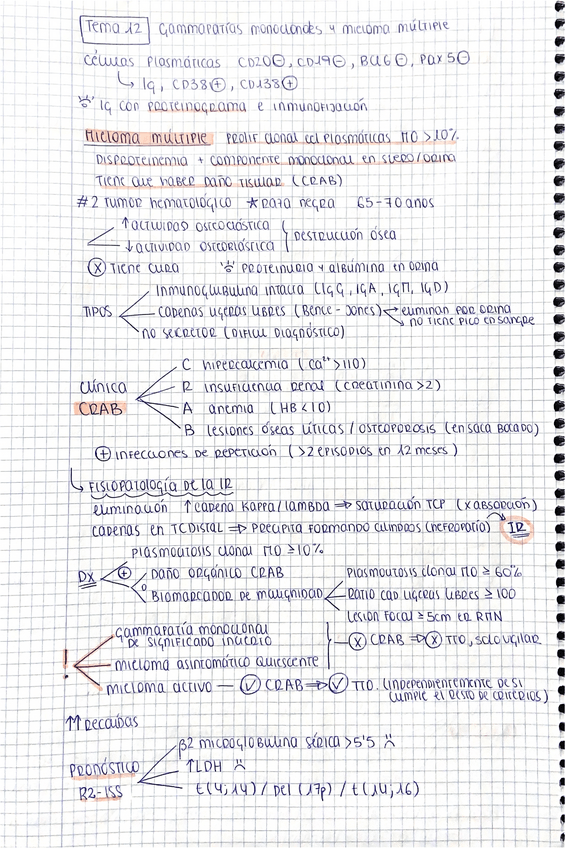 Tema 12 Gammapatías monoclonales y mieloma múltiple
Células plasmáticas CD20⊖, CD19⊖, BCL6⊖, PAX5⊖
↳ Ig, CD38⊕, CD138⊕
Ig con proteinograma e inmunofijación
MIELOMA MÚLTIPLE prolif clonal cel plasmáticas MO >10%
Disproteinemia + componente monoclonal en suero/orina
Tiene que haber daño tisular (CRAB)
#2 tumor hematológico ★raza negra 65-70 años
↑actividad osteoclástica
↓actividad osteoblástica } Destrucción ósea
ⓧ Tiene cura proteinuria y albúmina en orina
TIPOS
Inmunoglubulina intacta (IgG, IgA, IgM, IgD)
cadenas ligeras libres (Bence-Jones) → eliminan por orina
↘ no tiene pico en sangre
no secretor (difícil diagnóstico)
Clínica CRAB
C hipercalcemia (Ca²⁺>110)
R insuficiencia renal (creatinina >2)
A anemia (HB<10)
B lesiones óseas líticas / osteoporosis (en saca bocado)
⊕ infecciones de repetición (>2 episodios en 12 meses)
↳ FISIOPATOLOGÍA DE LA IR
eliminación ↑cadena kappa/lambda ⇒ saturación TCP (x absorción)
cadenas en TCDistal ⇒ precipita formando cilindros (nefropatía) IR
plasmocitosis clonal MO ≥10%
DX ⊕
Daño orgánico CRAB
o
Biomarcador de malignidad
plasmocitosis clonal MO ≥ 60%
Ratio cad ligeras libres ≥100
Lesión focal ≥5cm en RMN
!
gammapatía monoclonal de significado incierto
mieloma asintomático quiescente
ⓧ CRAB ⇒ ⓧ TTO, solo vigilar
mieloma activo — ✓ CRAB ⇒ ✓ TTO. (independientemente de si cumple el resto de criterios)
↑↑ Recaídas
PRONÓSTICO
R2-ISS
β2 microglobulina sérica >5'5 ☹
↑LDH ☹
t(4,14) / Del (17p) / t(14,16)